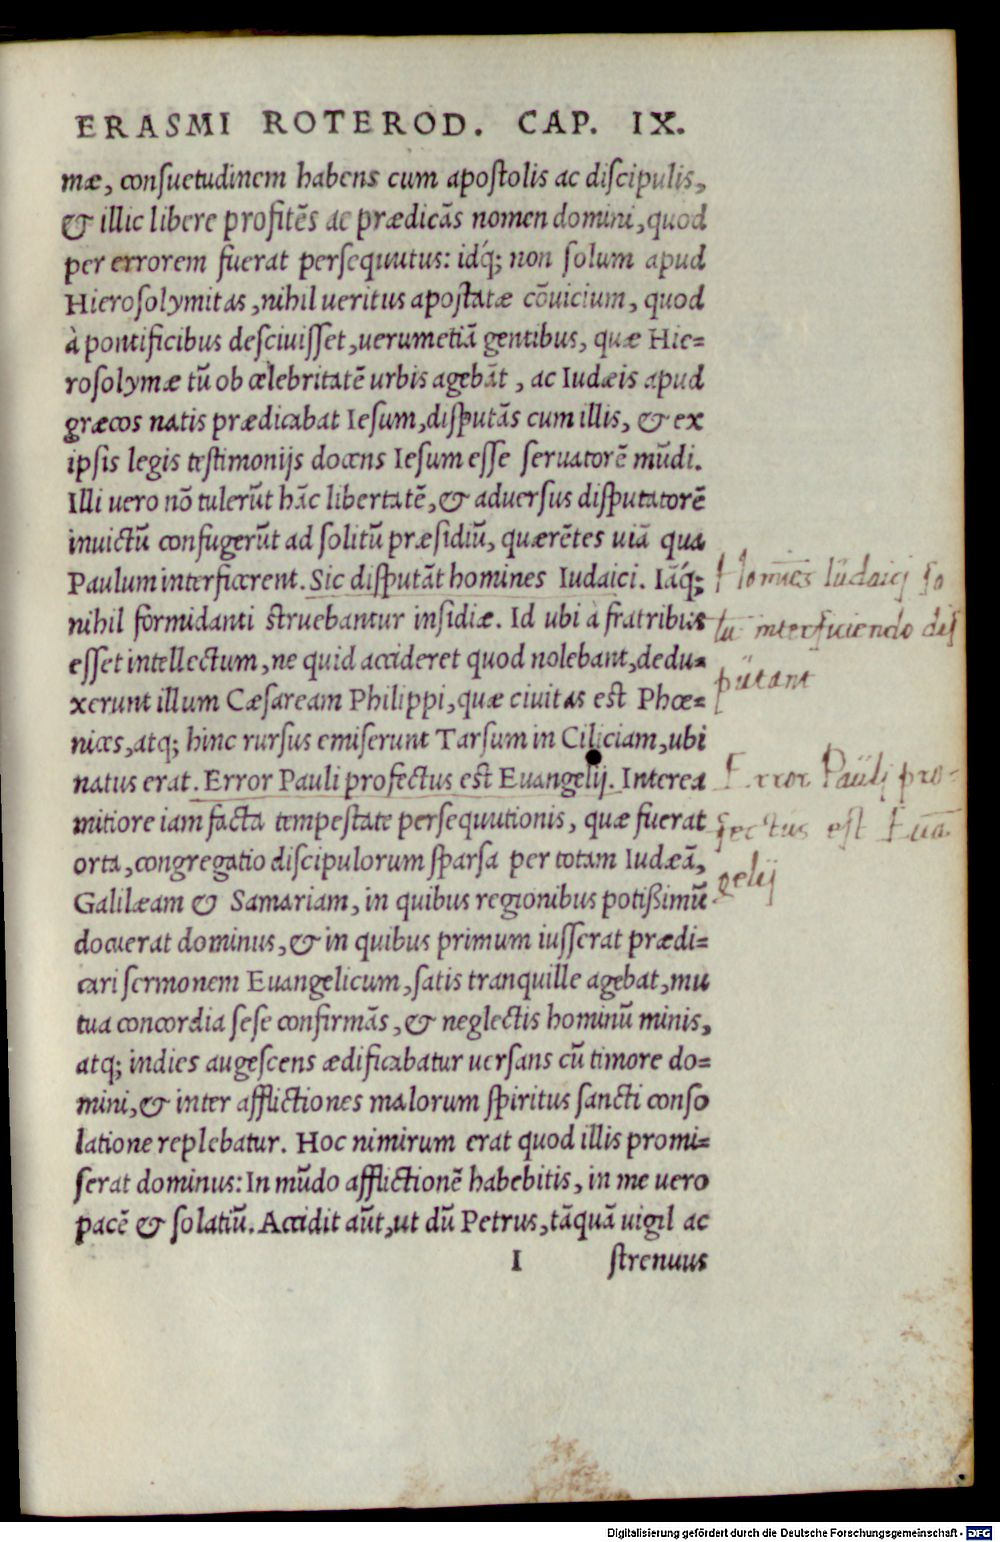 ERASMI ROTEROD. CAP. IX.
mæ, consuetudinem habens cum apostolis ac discipulis,
& illic libere profitēs ac prædicās nomen domini, quod
per errorem fuerat persequutus: idq́; non solum apud
Hierosolymitas, nihil ueritus apostatæ cōuicium, quod
à pontificibus desciuisset, uerumetiā gentibus, quæ Hie=
rosolymæ tū ob celebritatē urbis agebāt, ac Iudæis apud
græcos natis prædicabat Iesum, disputās cum illis, & ex
ipsis legis testimonijs docens Iesum esse seruatorē mūdi.
Illi uero nō tulerūt hāc libertatē, & aduersus disputatorē
inuictū confugerūt ad solitū præsidiū, quærētes uiā qua
Paulum interficerent. Sic disputāt homines Iudaici. Iāq́;
nihil formidanti struebantur insidiæ. Id ubi à fratribus
esset intellectum, ne quid accideret quod nolebant, dedu=
xerunt illum Cæsaream Philippi, quæ ciuitas est Phœ=
nices, atq; hinc rursus emiserunt Tarsum in Ciliciam, ubi
natus erat. Error Pauli profectus est Euangelij. Interea
mitiore iam facta tempestate persequutionis, quæ fuerat
orta, congregatio discipulorum sparsa per totam Iudæā,
Galilæam & Samariam, in quibus regionibus potißimū
docuerat dominus, & in quibus primum iusserat prædi=
cari sermonem Euangelicum, satis tranquille agebat, mu
tua concordia sese confirmās, & neglectis hominū minis,
atq; indies augescens ædificabatur uersans cū timore do=
mini, & inter afflictiones malorum spiritus sancti conso
latione replebatur. Hoc nimirum erat quod illis promi=
serat dominus: In mūdo afflictionē habebitis, in me uero
pacē & solatiū. Accidit aūt, ut dū Petrus, tāquā uigil ac
I strenuus
Homīes Iudaici so
lū interficiendo dis
putant
Error Pauli pro=
fectus est Euā
gelij
Digitalisierung gefördert durch die Deutsche Forschungsgemeinschaft - DFG